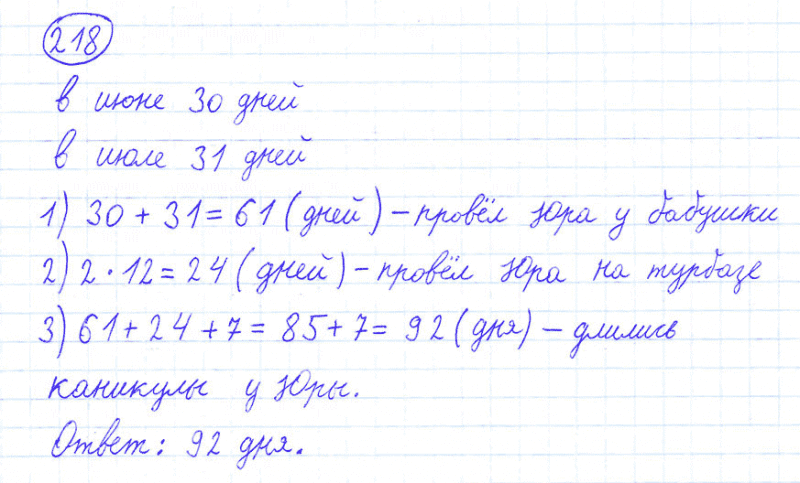 218
в июне 30 дней
в июле 31 дней
1) 30 + 31 = 61 (дней) – провёл Юра у бабушки
2) 2 · 12 = 24 (дней) – провёл Юра на турбазе
3) 61 + 24 + 7 = 85 + 7 = 92 (дня) – длились
каникулы у Юры.
Ответ: 92 дня.